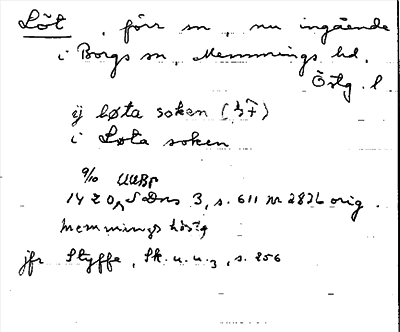 Löt, förr sn, nu ingående
i Borgs sn, Memmings hd,
Östg. l
ij løta soken
i Løta soken
9/10 UUBp
1420, SDns 3, s. 611 nr 2826 orig.
Memmings hdstg
jfr Styffe, Sk. u. u. 3, s. 256